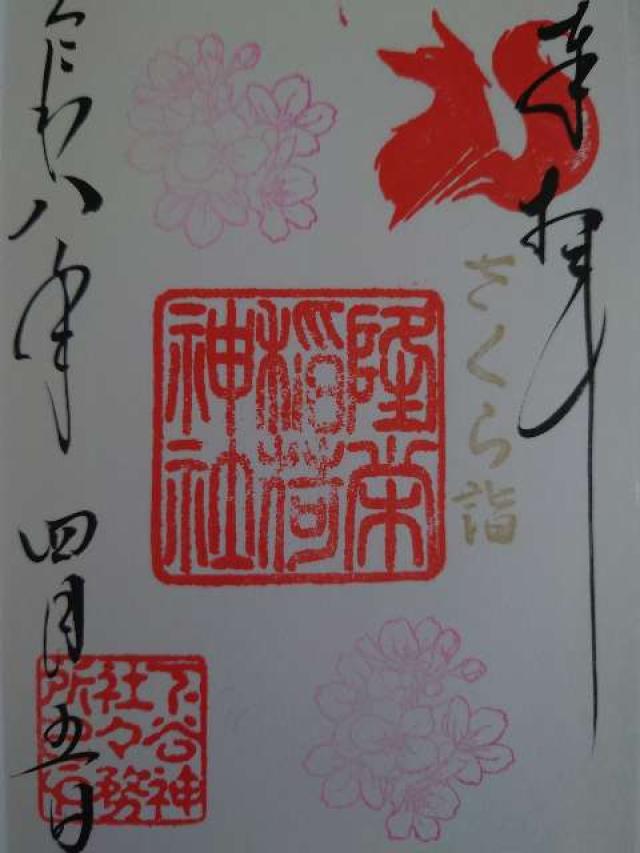 奉拝
さくら詣
隆栄
稲荷
神社
令和八年 四月五日
下谷神
社々務
所之印